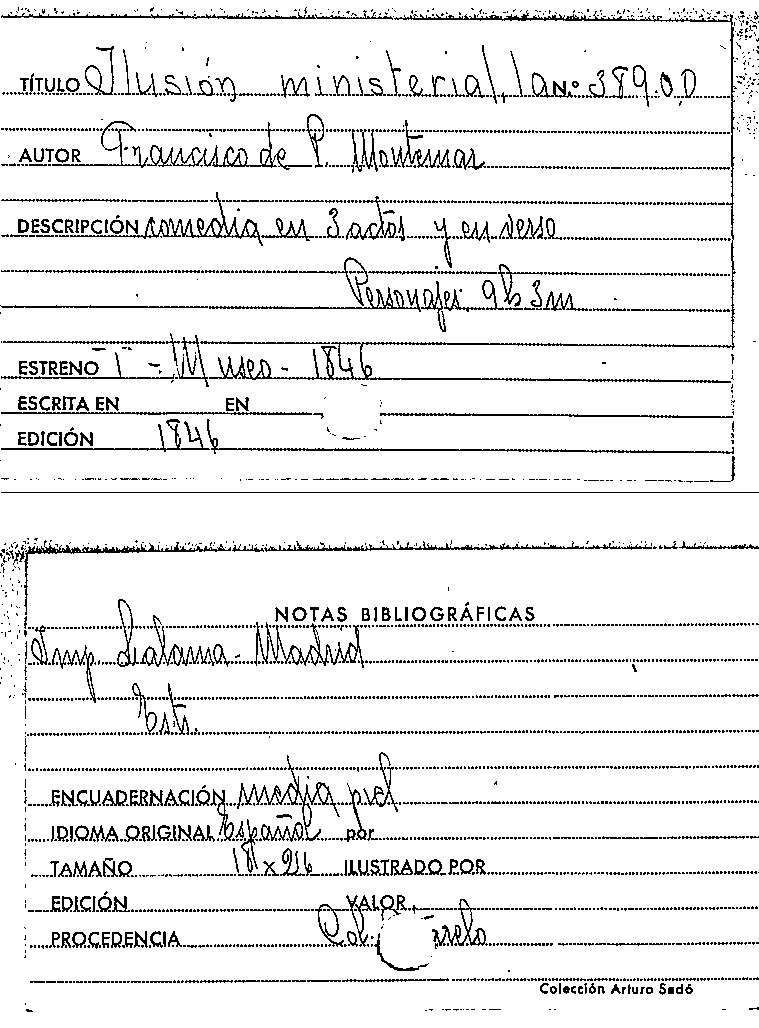 TÍTULO Ilusión ministerial, la N.º 389.O.D
AUTOR Francisco de P. Montemar
DESCRIPCIÓN comedia en 3 actos y en verso
Personajes: 9 h 3 m
ESTRENO T - Museo - 1846
ESCRITA EN EN
EDICIÓN 1846
NOTAS BIBLIOGRÁFICAS
Imp. Lalama - Madrid
Estr.
ENCUADERNACIÓN media piel
IDIOMA ORIGINAL Español por
TAMAÑO 18 x 26 ILUSTRADO POR
EDICIÓN VALOR
PROCEDENCIA Col.
Colección Arturo Sedó